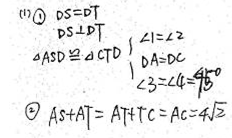 (1) ① DS=DT
DS⊥DT
△ASD≌△CTD { ∠1=∠2
DA=DC
∠3=∠4=45°
② AS+AT=AT+TC=AC=4√2